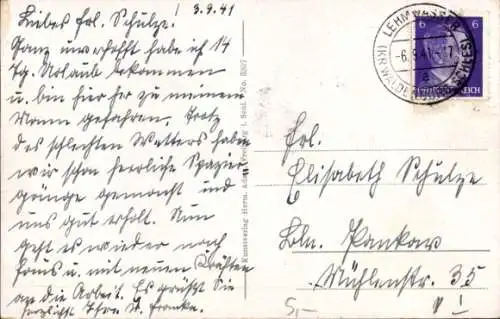 3.9.41
Liebes Frl. Schulze!
Ganz unverhofft habe ich 14
Tg. Urlaub bekommen
u. bin hier her zu meinem
Mann gefahren. Trotz
des schlechten Wetters haben
wir schon herrliche Spazier
gänge gemacht und
uns gut erholt. Nun
geht es wieder nach
Haus u. mit neuen Kräften
an die Arbeit. Es grüßt Sie
herzlichst Ihre H. Franke.
Kunstverlag Herm.
No.
LEHMWASSER
-6.9.41.-17
a
6
6
REICH
Frl.
Elisabeth Schulze
Bln. Pankow
Mühlenstr. 35
V I
5,-